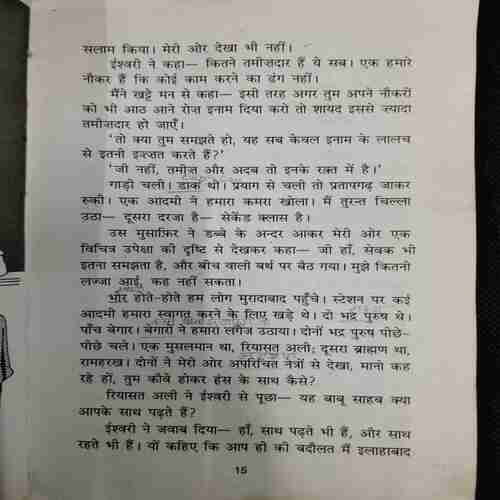 सलाम किया। मेरी ओर देखा भी नहीं।
ईश्वरी ने कहा— कितने तमीज़दार हैं ये सब। एक हमारे
नौकर हैं कि कोई काम करने का ढंग नहीं।
मैंने खट्टे मन से कहा— इसी तरह अगर तुम अपने नौकरों
को भी आठ आने रोज़ इनाम दिया करो तो शायद इससे ज्यादा
तमीज़दार हो जाएँ।
'तो क्या तुम समझते हो, यह सब केवल इनाम के लालच
से इतनी इज्ज़त करते हैं?'
'जी नहीं, तमीज़ और अदब तो इनके रक्त में है।'
गाड़ी चली। डाक थी। प्रयाग से चली तो प्रतापगढ़ जाकर
रुकी। एक आदमी ने हमारा कमरा खोला। मैं तुरन्त चिल्ला
उठा— दूसरा दरजा है— सेकेंड क्लास है।
उस मुसाफ़िर ने डब्बे के अन्दर आकर मेरी ओर एक
विचित्र उपेक्षा की दृष्टि से देखकर कहा— जी हाँ, सेवक भी
इतना समझता है, और बीच वाली बर्थ पर बैठ गया। मुझे कितनी
लज्जा आई, कह नहीं सकता।
भोर होते-होते हम लोग मुरादाबाद पहुँचे। स्टेशन पर कई
आदमी हमारा स्वागत करने के लिए खड़े थे। दो भद्र पुरुष थे।
पाँच बेगार। बेगारों ने हमारा लगेज उठाया। दोनों भद्र पुरुष पीछे-
पीछे चले। एक मुसलमान था, रियासत अली; दूसरा ब्राह्मण था,
रामहरख। दोनों ने मेरी ओर अपरिचित नेत्रों से देखा, मानो कह
रहे हों, तुम कौवे होकर हंस के साथ कैसे?
रियासत अली ने ईश्वरी से पूछा— यह बाबू साहब क्या
आपके साथ पढ़ते हैं?
ईश्वरी ने जवाब दिया— हाँ, साथ पढ़ते भी हैं, और साथ
रहते भी हैं। यों कहिए कि आप ही की बदौलत मैं इलाहाबाद
15